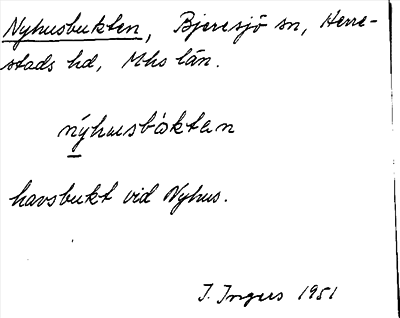 Nyhusbukten, Bjeresjö sn, Herre-
stads hd, Mhs län.
nýhusbòktən
havsbukt vid Nyhus.
I. Ingers 1951